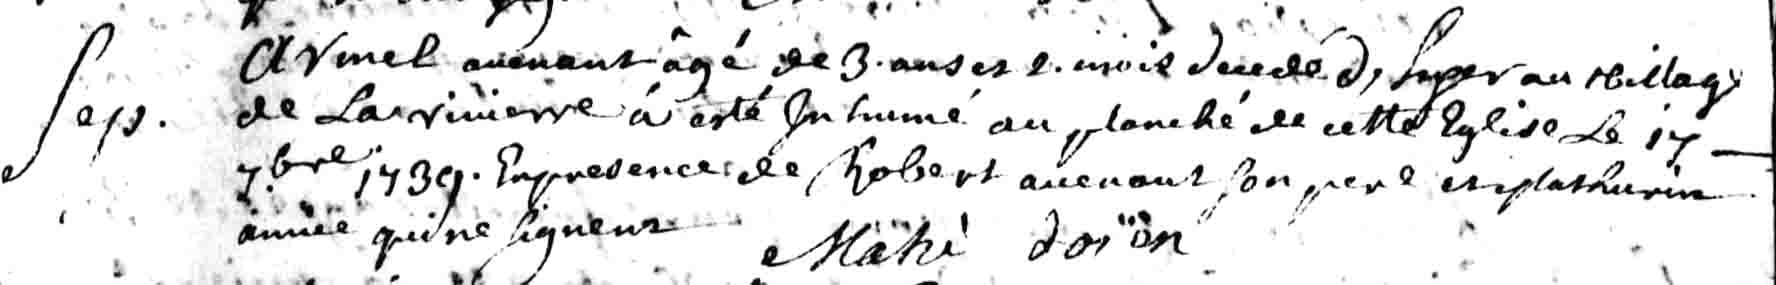 Armel auenant âgé de 3. ans et 2. mois decedé d'hyer au village
Sep. de La riuierre á esté Jnhumé au planché de cette Eglise Le 17
7.bre 1739. En presence de Robert auenant son pere et Mathurin
année qui ne signent Mahé doïen